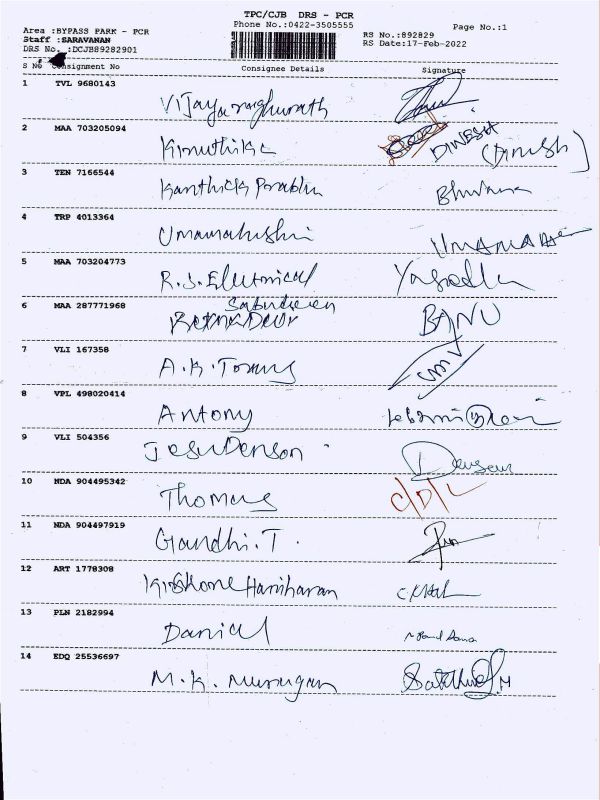 TPC/CJB DRS - PCR
Area :BYPASS PARK - PCR Phone No.:0422-3505555 Page No.:1
Staff :SARAVANAN RS No.:892829
DRS No. :DCJB89282901 RS Date:17-Feb-2022
S No Consignment No Consignee Details Signature
1 TVL 9680143
Vijayaraghunath
2 MAA 703205094
Kiruthika DINESH (Dinesh)
3 TEN 7166544
Karthick Prabhu Bhuvana
4 TRP 4013364
Umamaheshwari UMAMA
5 MAA 703204773
R.S. Electrical Yasodha
6 MAA 287771968
BANU
7 VLI 167358
A.K. Tomy
8 VPL 498020414
Antony
9 VLI 504356
JesuDenson Denson
10 NDA 904495342
Thomas C/D/L
11 NDA 904497919
Gandhi.T.
12 ART 1778308
Kishore Hariharan
13 PLN 2182994
Danial
14 EDQ 25536697
M.K. Murugan